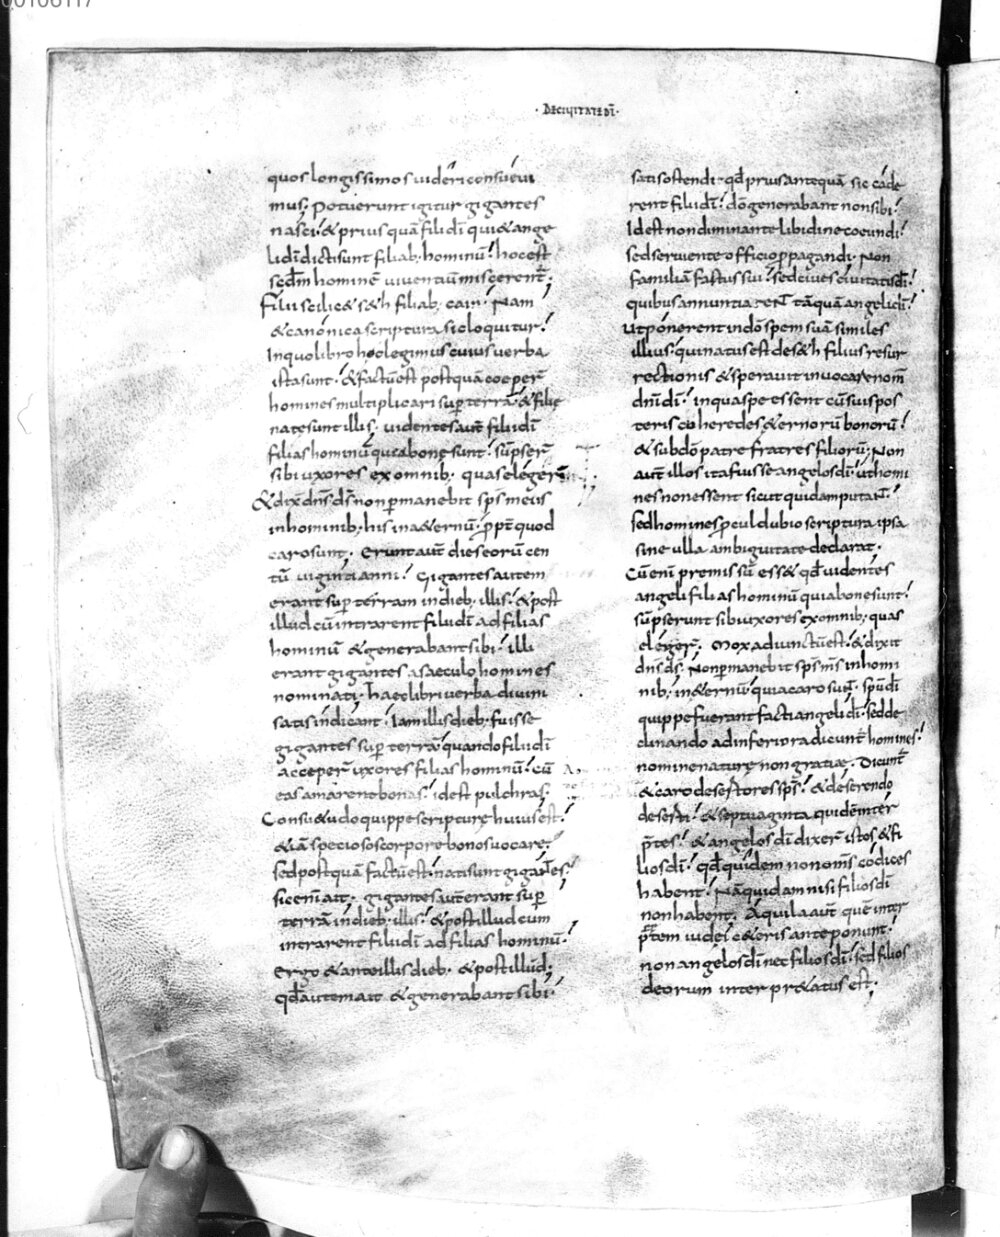 00106117
· DECIVITATE DĪ ·
quos longissimos uidēri consuéui
mus; Potuerunt igitur gigantes
nasci· & prius quā filii dī qui & ange
li dī dicti sunt filiab; hominū· hoc est
scdm̄ hominē uiuentiū miscerent̄;
filii scilic& s&h filiab; cain· Nam
& canónica scriptura sic loquitur·
In quo libro hoc legimus cuius uerba
ista sunt· & factū est postquā coeper̄
homines multiplicari sup̄ terrā· & filię
natę sunt illis· uidentes aut̄ filii dī
filias hominū quia bonę sunt· sūpser̄
sibi uxores ex omnib; quas elégerū
& dix̄ dn̄s d̄s non p̄manebit sp̄s meus
in hominib; his in a&ernū· ꝓpt̄ quod
caro sunt· Erunt aut̄ dies eorū cen
tū uiginti anni· Gigantes autem
erant sup̄ terram in dieb; illis· & post
illud cū intrarent filii dī ad filias
hominū & generabant sibi· illi
erant gigantes a saeculo homines
nominati· haec libri uerba diuini
satis indicant· Iam illis dieb; fuisse
gigantes sup̄ terrā quando filii dī
acceper̄ uxores filias hominū· cū
eas amarent bonas· id est pulchras;
Consu&udo quippe scripturę huius est·
& iā speciosos corpore bonos uocare·
sed postquā factū est· nati sunt gigant̄es·
sic enī ait· gigantes aut̄ erant sup̄
terrā in dieb; illis· & post illud cum
intrarent filii dī ad filias hominū·
Ergo & ante illis dieb; & post illud;
qd̄ autem ait & generabant sibi·
satis ostendi· qd̄ prius antequā sic cáde
rent filii dī· dō generabant non sibi·
Id est non diminante libidine coeundi·
sed seruiente officio ꝓpagandi· Non
familiā fastus sui· sed ciues ciuitatis dī·
quibus annuntiarent̄ tāquā angeli dī·
ut pónerent in dō spem suā similes
illius· qui natus est de s&h filius resur
rectionis & sperauit inuocare nom̄
dn̄i dī· in qua spe essent cū suis pos
teris coheredes &ernorū bonorū·
& sub dō patre fratres filiorū; Non
aut̄ illos ita fuisse angelos dī· ut homi
nes non essent sicut quidam putant̄·
sed homines ꝓcul dubio scriptura ipsa
sine ulla ambiguitate declarat·
Cū enī premissū ess& qd̄ uidentes
angeli filias hominū quia bonę sunt·
sūpserunt sibi uxores ex omnib; quas
elégēr̄; Mox adiunctū est· & dixit
dn̄s d̄s· Non p̄manebit sp̄s m̄s in homi
nib; in &ernū· quia caro sunt̄· sp̄u dī
quippe fuerant facti angeli dī· sed de
clinando ad inferiora dicunt̄ homines·
nomine naturę non gratiae· Dicunt̄
& caro desertores sp̄s· & déserendo
deserti· & septuaginta quidē inter
p̄tes· & angelos dī dixer̄ istos & fi
lios dī· qd̄ quídem non om̄s códices
habent· Nā quidam nisi filios dī
non habent· Aquila aut̄ quē inter
p̄tem iudei c&eris anteponunt·
non angelos dī nec filios dī· sed filios
deorum interpr&atus est;